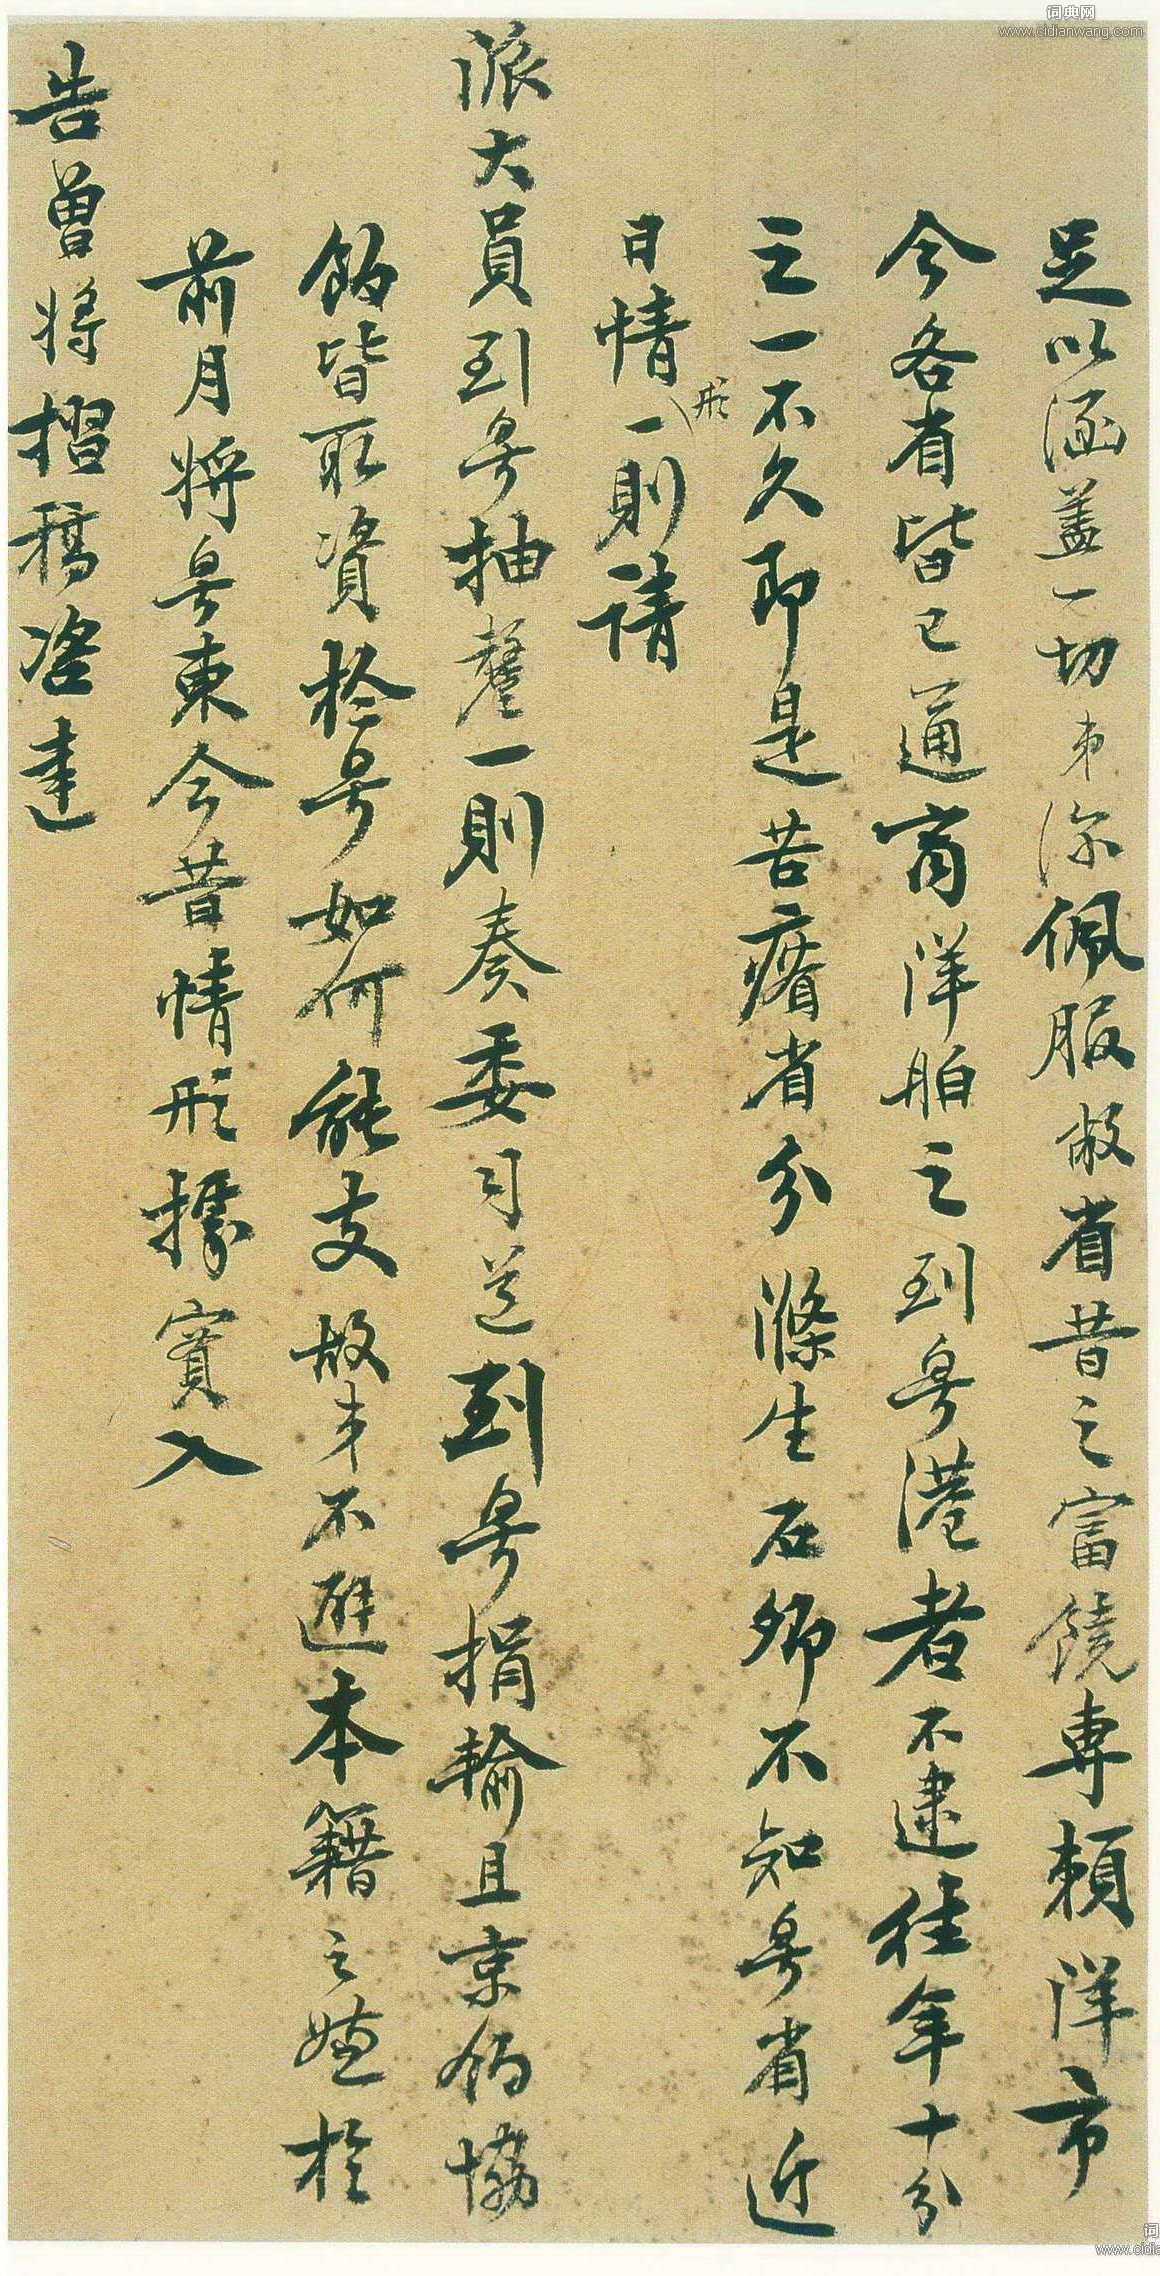 足以涵蓋一切弟深佩服敝省昔之富饒專賴洋市
今各省皆已通商洋舶之到粵港者不逮往年十分
之一不久即是苦瘠省分滌生石卿不知粵省近
日情形一則請
派大員到粵抽釐一則奏委司道到粵捐輸且京餉協
餉皆取資於粵如何能支故弟不避本籍之嫌於
前月將粵東今昔情形據實入
告曾將摺稿咨達
词典网
www.cidianwang.com